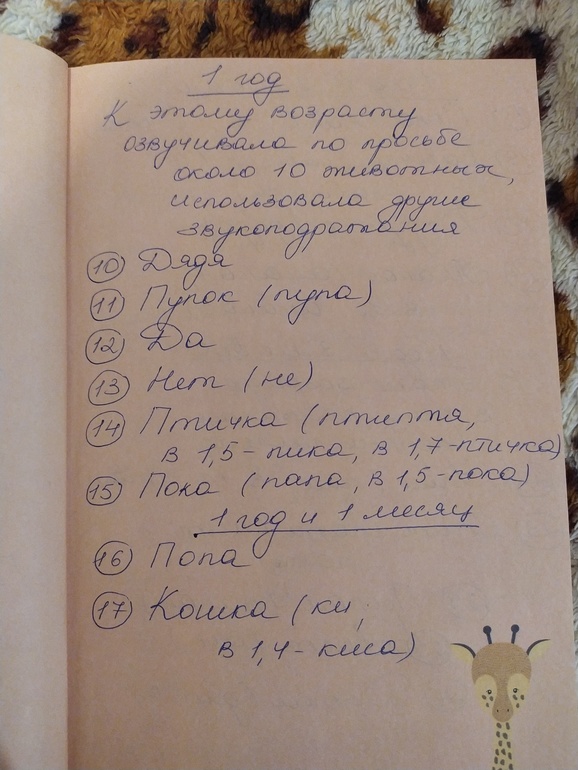 1 год
К этому возрасту
озвучивала по просьбе
около 10 животных,
использовала другие
звукоподражания
10 Дядя
11 Пупок (пупа)
12 Да
13 Нет (не)
14 Птичка (птиптя,
в 1,5 - пика, в 1,7-птичка)
15 Пока (папа, в 1,5-пока)
1 год и 1 месяц
16 Попа
17 Кошка (ки,
в 1,4 - киса)